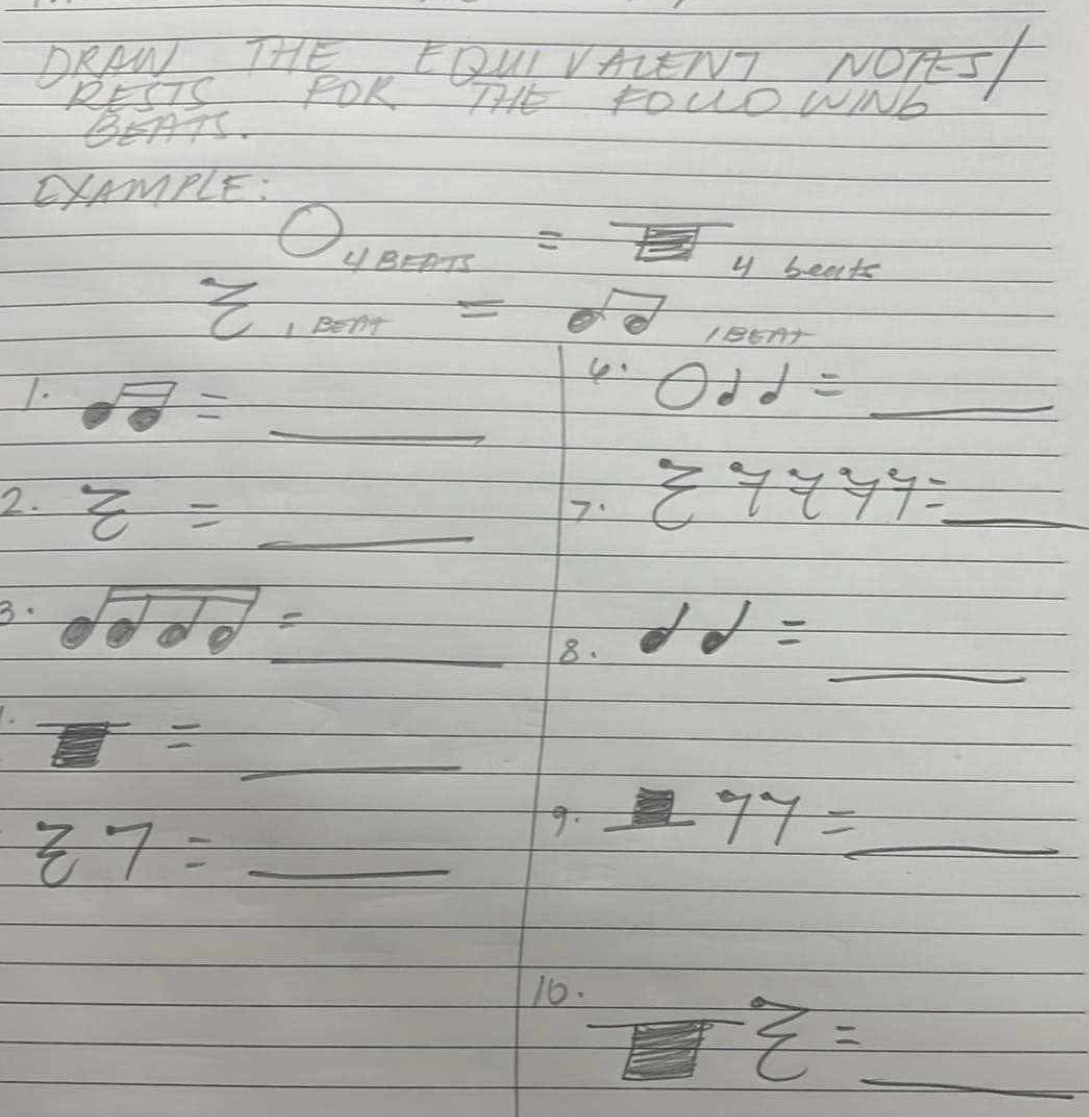 DRAW THE EQUIVALENT NOTES/
RESTS FOR THE FOLLOWING
BEATS.
EXAMPLE:
4 BEATS = 4 beats
1 BEAT = 1 BEAT
1. =
2. =
3. =
=
=
6. =
7. =
8. =
9. =
10. =